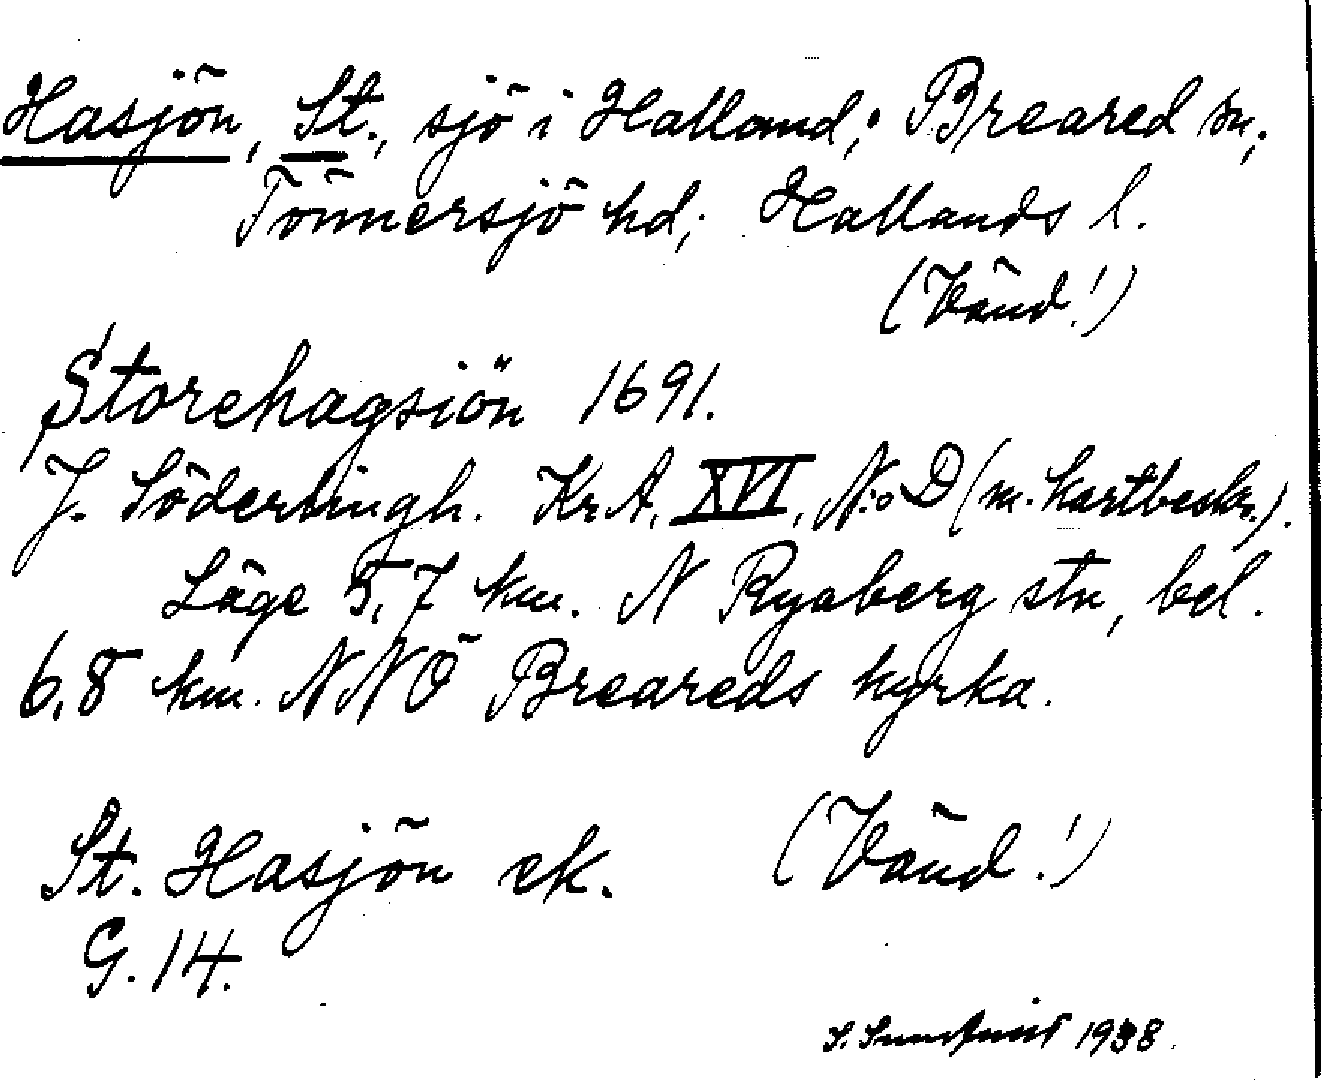 Hasjön, St., sjö i Halland; Breared sn;
Tönnersjö hd; Hallands l.
(Vänd!)
Storehagsiön 1691.
J. Söderlingh. Kr.A. XVI, N:o D (m. kartbeskr.).
Läge 5,7 km. N Ryaberg stn, bel.
6,8 km. NNÖ Breareds kyrka.
St. Hasjön ek. (Vänd!)
G. 14.
S. 1938.